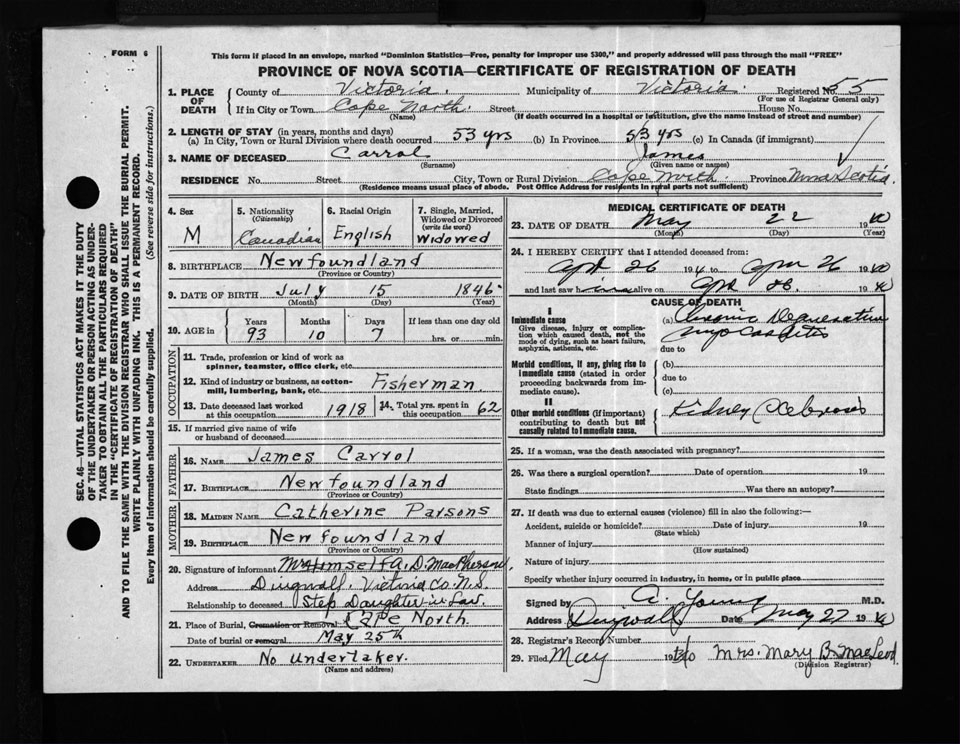 FORM 6
This form if placed in an envelope, marked "Dominion Statistics—Free, penalty for improper use $300," and properly addressed will pass through the mail "FREE"
PROVINCE OF NOVA SCOTIA—CERTIFICATE OF REGISTRATION OF DEATH
1. PLACE OF DEATH
County of Victoria. Municipality of Victoria. Registered No. 55
(For use of Registrar General only)
If in City or Town Cape North. Street House No.
(Name) (If death occurred in a hospital or institution, give the name instead of street and number)
2. LENGTH OF STAY (in years, months and days)
(a) In City, Town or Rural Division where death occurred 53 yrs (b) In Province 53 yrs (c) In Canada (if immigrant)
3. NAME OF DECEASED Carrol James
(Surname) (Given name or names)
RESIDENCE No. Street City, Town or Rural Division Cape North Province Nova Scotia
(Residence means usual place of abode. Post Office Address for residents in rural parts not sufficient)
4. Sex M
5. Nationality (Citizenship) Canadian
6. Racial Origin English
7. Single, Married, Widowed or Divorced (write the word) Widowed
8. BIRTHPLACE Newfoundland
(Province or Country)
9. DATE OF BIRTH July 15 1846
(Month) (Day) (Year)
10. AGE in Years 93 Months 10 Days 7 If less than one day old hrs. or min.
OCCUPATION
11. Trade, profession or kind of work as spinner, teamster, office clerk, etc.
12. Kind of industry or business, as cotton-mill, lumbering, bank, etc. Fisherman
13. Date deceased last worked at this occupation 1918
14. Total yrs. spent in this occupation 62
15. If married give name of wife or husband of deceased
FATHER
16. NAME James Carrol
17. BIRTHPLACE Newfoundland
(Province or Country)
MOTHER
18. MAIDEN NAME Catherine Parsons
19. BIRTHPLACE Newfoundland
(Province or Country)
20. Signature of informant A. D. MacPherson
Address Dingwall. Victoria Co. N.S.
Relationship to deceased Step Daughter-in-Law.
21. Place of Burial, Cremation or Removal Cape North.
Date of burial or removal May 25th
22. UNDERTAKER No Undertaker.
(Name and address)
MEDICAL CERTIFICATE OF DEATH
23. DATE OF DEATH May 22 1940
(Month) (Day) (Year)
24. I HEREBY CERTIFY that I attended deceased from:
26 194 to 26 1940
and last saw h alive on 1940
CAUSE OF DEATH
I
Immediate cause
Give disease, injury or complication which caused death, not the mode of dying, such as heart failure, asphyxia, asthenia, etc.
(a) Chronic Degenerative Myocarditis
due to
Morbid conditions, if any, giving rise to immediate cause (stated in order proceeding backwards from immediate cause).
(b)
due to
(c)
II
Other morbid conditions (if important) contributing to death but not causally related to immediate cause.
Kidney
25. If a woman, was the death associated with pregnancy?
26. Was there a surgical operation? Date of operation 19
State findings Was there an autopsy?
27. If death was due to external causes (violence) fill in also the following:—
Accident, suicide or homicide? Date of injury 19
(State which)
Manner of injury
(How sustained)
Nature of injury
Specify whether injury occurred in industry, in home, or in public place
Signed by A. Young M.D.
Address Dingwall Date May 27 1940
28. Registrar's Record Number
29. Filed May 1940 Mrs. Mary B. MacLeod.
(Division Registrar)
SEC. 46—VITAL STATISTICS ACT MAKES IT THE DUTY
OF THE UNDERTAKER OR PERSON ACTING AS UNDER-
TAKER TO OBTAIN ALL THE PARTICULARS REQUIRED
IN THE "CERTIFICATE OF REGISTRATION OF DEATH"
AND TO FILE THE SAME WITH THE DIVISION REGISTRAR WHO SHALL ISSUE THE BURIAL PERMIT.
WRITE PLAINLY WITH UNFADING INK. THIS IS A PERMANENT RECORD.
Every item of information should be carefully supplied. (See reverse side for instructions.)